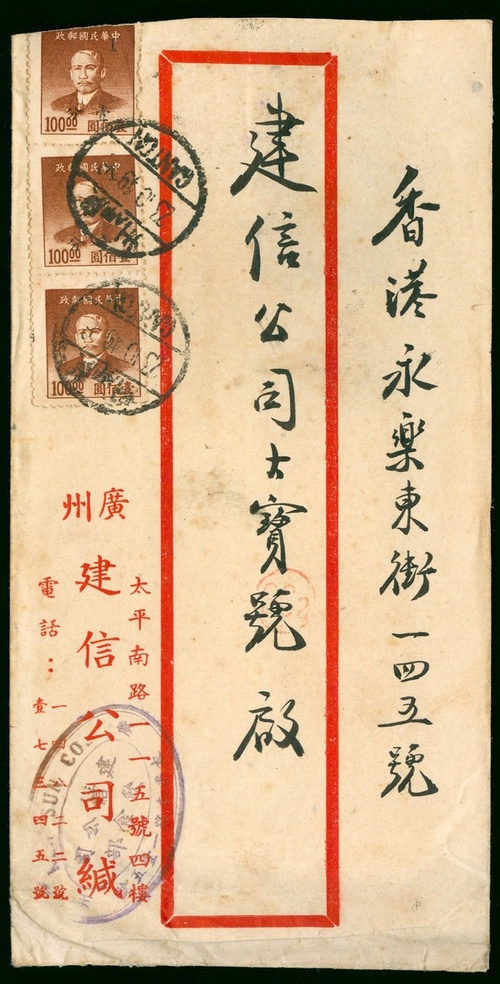 香港永樂東街一四五號
建信公司大寶號啟
中華民國郵政
100.00
壹佰圓
中華民國郵政
100.00
壹佰圓
中華民國郵政
100.00
壹佰圓
CANTON
CANTON
廣州
太平南路一一五號四樓
建信公司緘
電話：
一四二二二號
壹七三四五號
SUN CO.